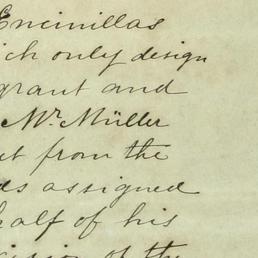 Encinillas
ich only design
grant and
Mr. Müller
et from the
ds assigned
half of his
ision of the